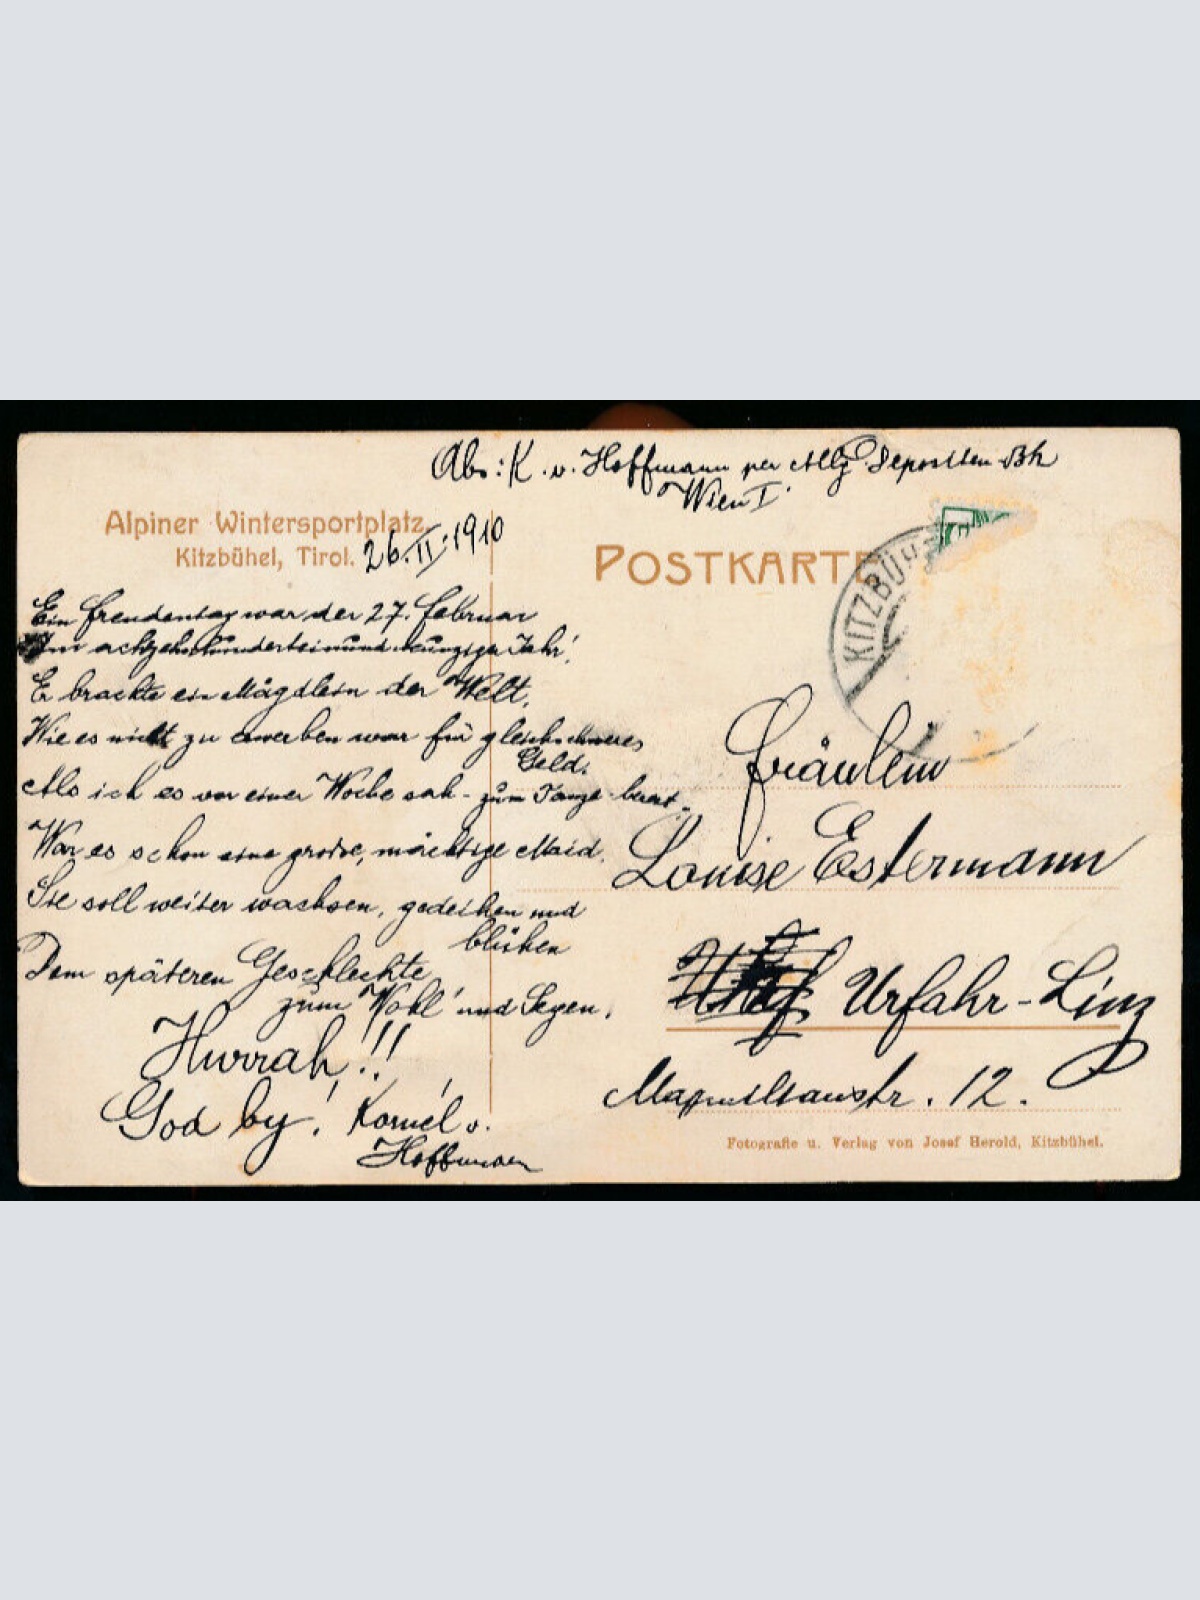 Abs: K. v. Hoffmann per Allg. Depositen-Bk
Wien I.
Alpiner Wintersportplatz
Kitzbühel, Tirol.
26.II.1910
POSTKARTE
KITZBÜH
Ein Freudentag war der 27. Februar
Im achtzehnhunderteinundneunziger Jahr!
Er brachte ein Mägdlein der Welt,
Wie es nicht zu erwerben war für gleichschweres
Geld.
Als ich es vor einer Woche sah - zum Tanze bereit -
War es schon eine große, mächtige Maid.
Sie soll weiter wachsen, gedeihen und
blühen
Dem späteren Geschlechte
zum Wohl und Segen.
Hurrah!!!
God by! Kornél v.
Hoffmann
Fräulein
Louise Estermann
Urfahr-Linz
Maximilianstr. 12.
Fotografie u. Verlag von Josef Herold, Kitzbühel.